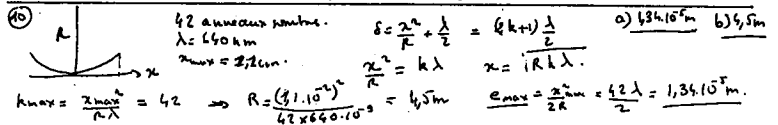 ⑩ R x
42 anneaux sombres.
λ = 640 nm
x_max = 1,1 cm.
δ = x²/R + λ/2 = (2k+1) λ/2
x²/R = kλ x = √(Rkλ)
a) 1,34.10⁻⁵m b) 4,5m
k_max = x_max²/(Rλ) = 42 ⇒ R = (1,1.10⁻²)²/(42×640.10⁻⁹) = 4,5m e_max = x²_max/(2R) = 42λ/2 = 1,34.10⁻⁵m.